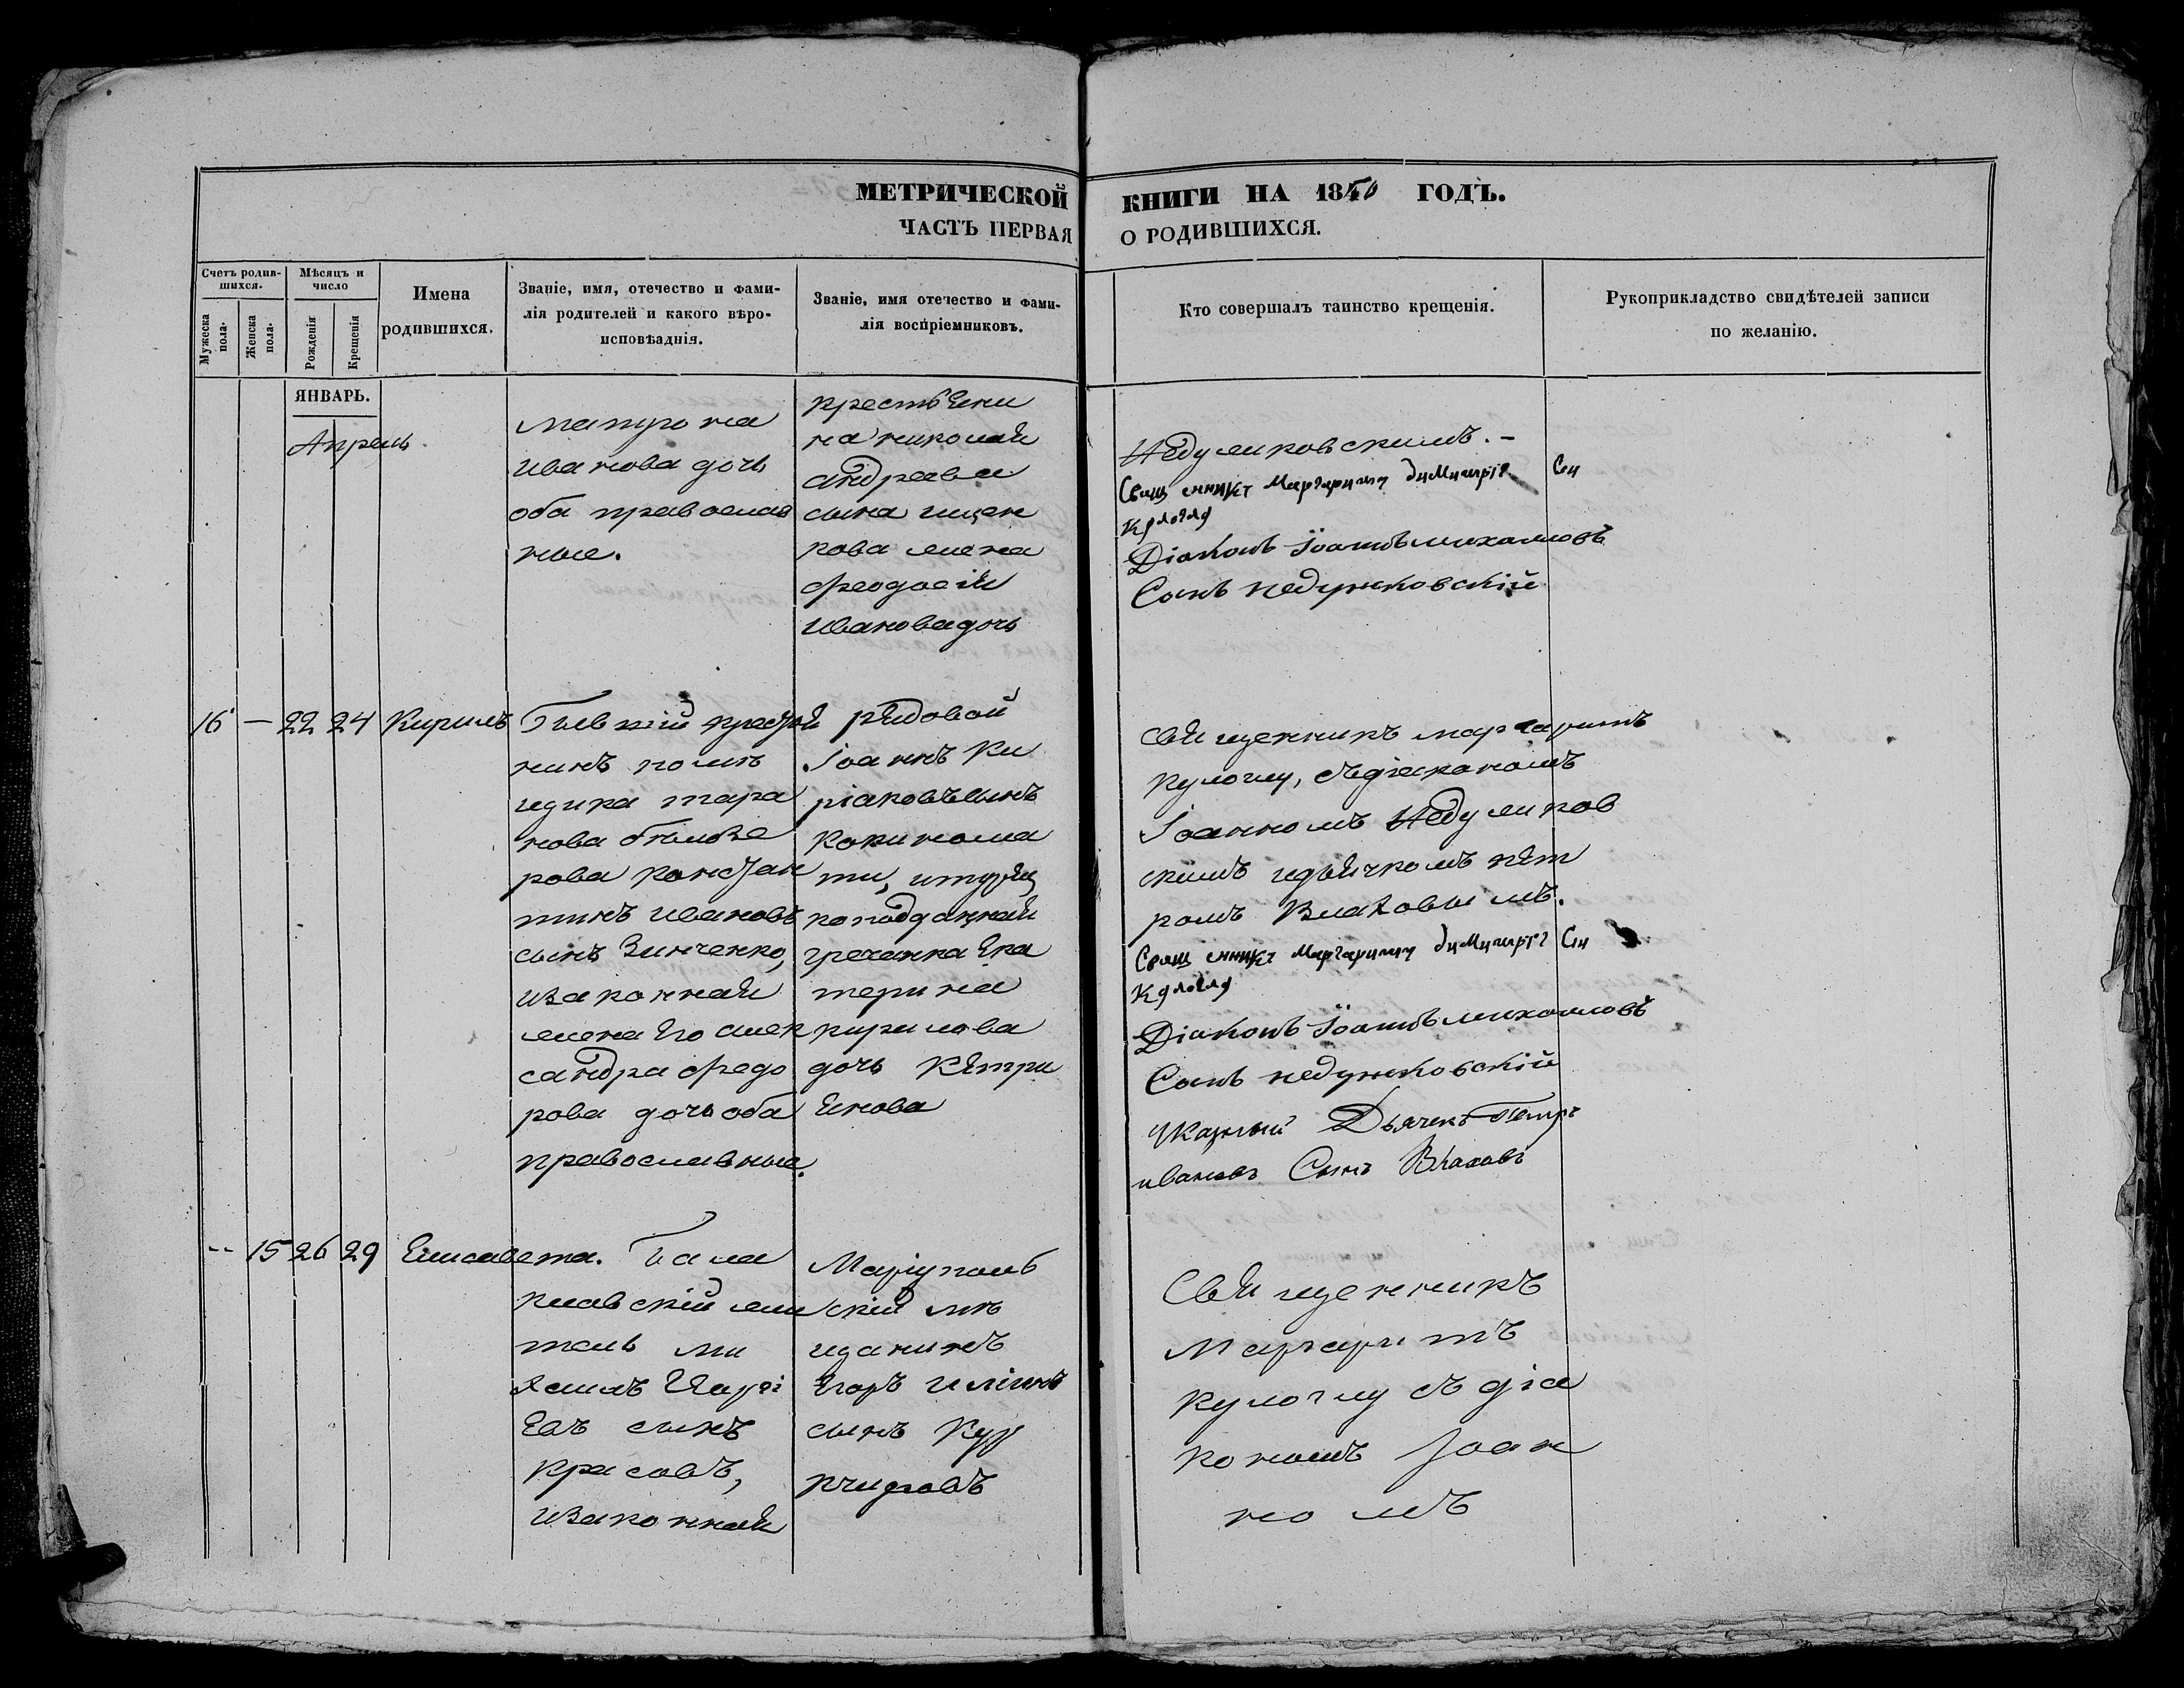 МЕТРИЧЕСКОЙ КНИГИ НА 1850 ГОДЪ.
ЧАСТЬ ПЕРВАЯ О РОДИВШИХСЯ.
Счетъ родив-
шихся.
Мужеска
пола.
Женска
пола.
Мѣсяцъ и
число
Рожденія
Крещенія
Имена
родившихся.
Званіе, имя, отечество и фами-
лія родителей и какого вѣро-
исповѣаднія.
Званіе, имя отечество и фами-
лія воспріемниковъ.
Кто совершалъ таинство крещенія.
Рукоприкладство свидѣтелей записи
по желанію.
ЯНВАРЬ.
Апрель
матрона
Иванова дочь
оба православ
ные.
на николая
андреева
сына
жена
феодосія
Иванова дочь
Недуликовскимъ.-
Маргаритъ Димитріе
Діаконъ Іоаннъ михаиловъ
Сынъ недуликовскій
16 — 22 24 Кирилъ
нинъ помѣ
щика
константи
тинъ ивановъ
сынъ Зинченко,
изаконная
жена Его алек
сандра федо
рова дочь оба
православные.
рядовой
Іоаннъ Ки
ріаковъ сынъ
ти, итурец
коподданная
гречанка Ека
терина
кирилова
дочь
священникъ маргаритъ
кулоглу, съдіакономъ
Іоанномъ Недуликов
скимъ идьячкомъ пет
ромъ Влаховымъ.
Маргаритъ Димитріе
Діаконъ Іоаннъ михаиловъ
Сынъ недуликовскій
Указный Дьячекъ Петръ
ивановъ Сынъ Влаховъ
-- 15 26 29 Елисавета.
клавскій жи
тель
сынъ
Красовъ,
изаконная
Маріуполь
скій мѣ
щанинъ
Егоръ
сынъ
Священникъ
Маргаритъ
кулоглу съ діа
кономъ Іоан
номъ